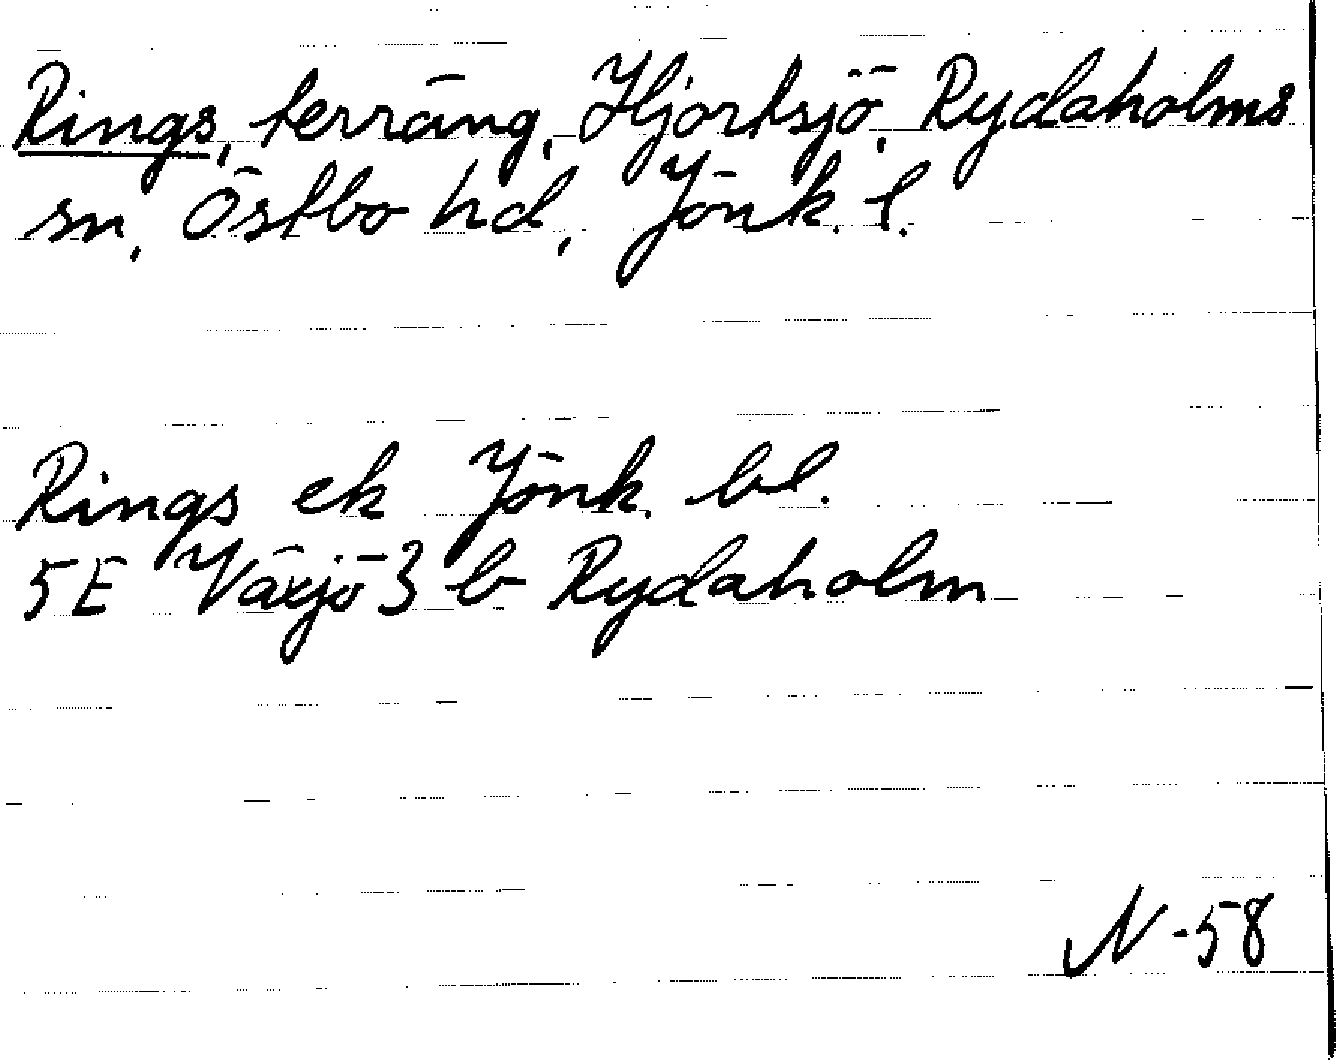 Rings, terräng, Hjortsjö, Rydaholms
sn, Östbo hd, Jönk. l.
Rings ek Jönk. bl.
5E Växjö 3 b Rydaholm
N -58